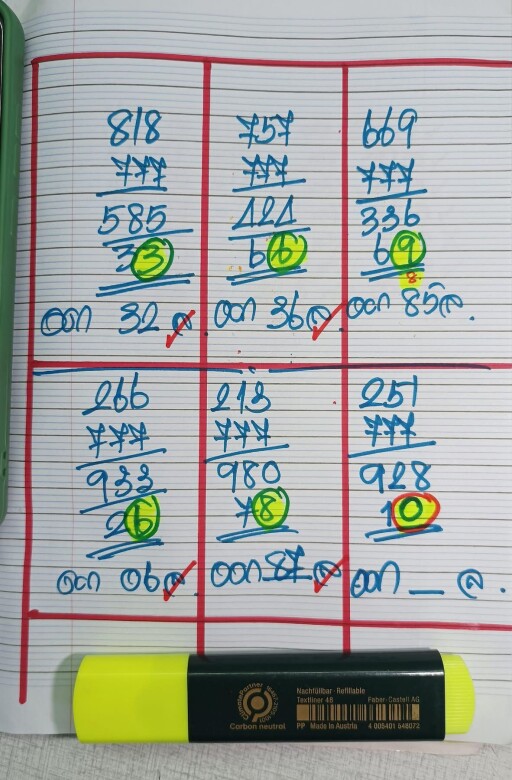 818
777
585
33
ออก 32 ล.
757
777
424
66
ออก 36 ล.
669
777
336
69
8
ออก 85 ล.
266
777
933
26
ออก 06 ล.
213
777
980
78
ออก 87 ล
251
777
928
10
ออก _ ล.
ClimatePartner
Carbon neutral
Nachfüllbar · Refillable
Textliner 48 Faber-Castell AG
PP Made in Austria 4 005401 548073